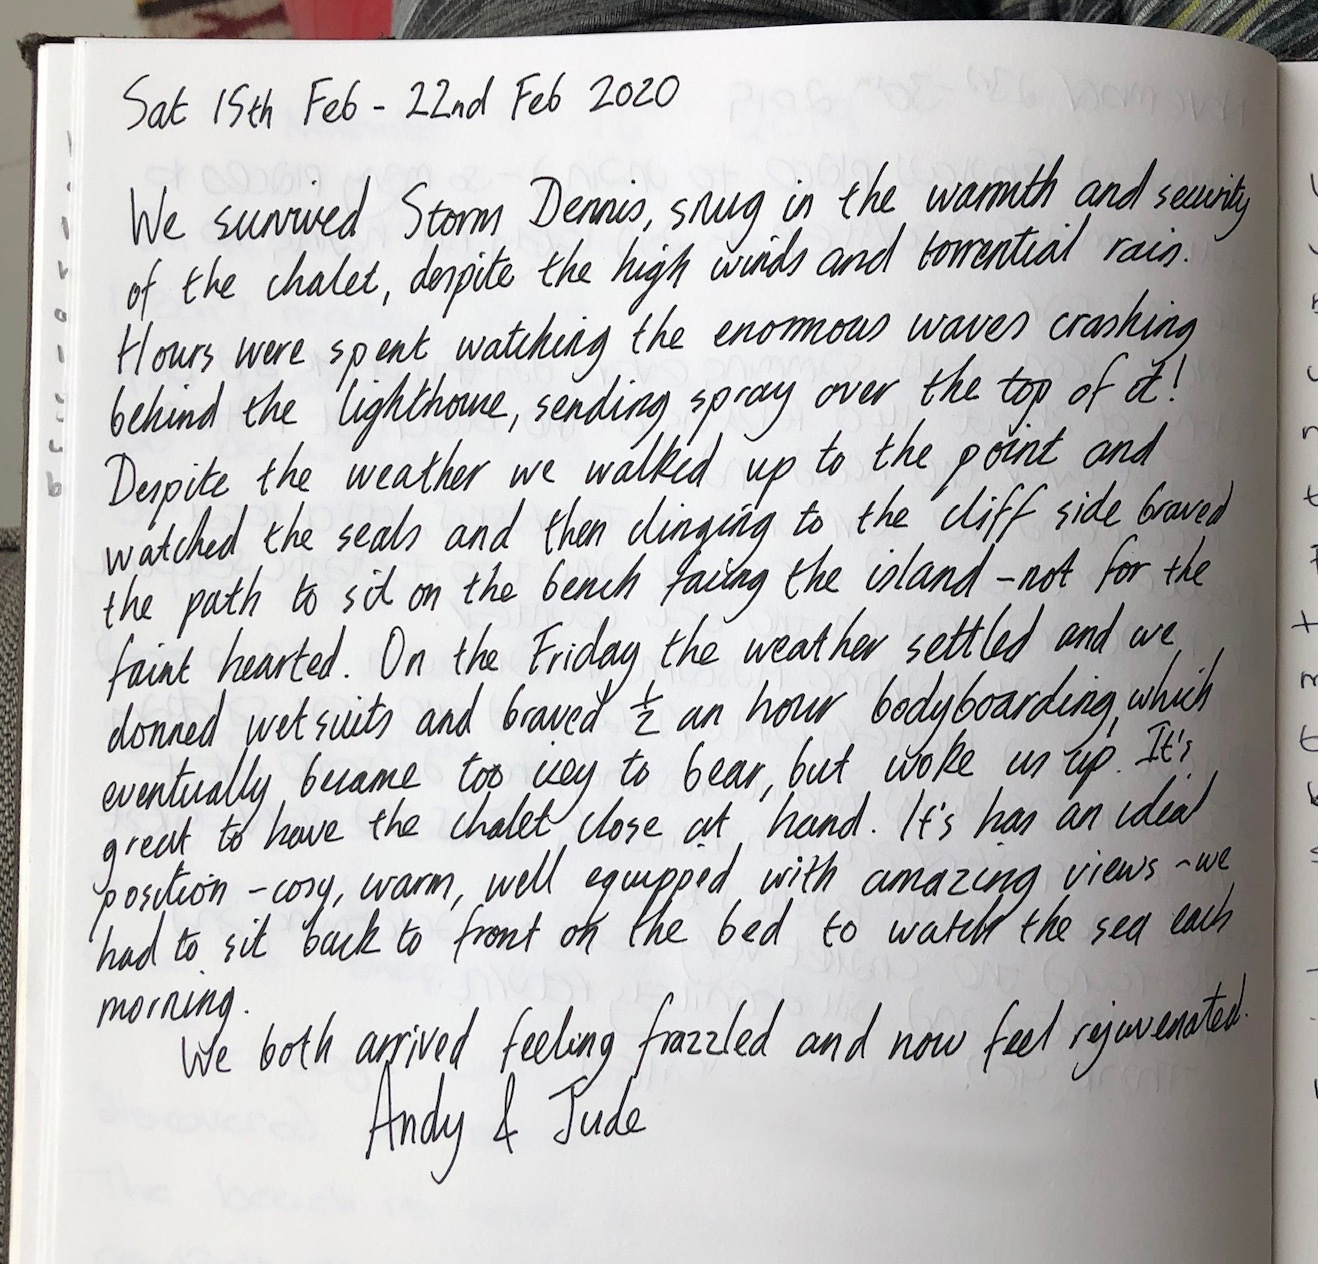 Sat 15th Feb - 22nd Feb 2020
We survived Storm Dennis, snug in the warmth and security
of the chalet, despite the high winds and torrential rain.
Hours were spent watching the enormous waves crashing
behind the lighthouse, sending spray over the top of it!
Despite the weather we walked up to the point and
watched the seals and then clinging to the cliff side braved
the path to sit on the bench facing the island - not for the
faint hearted. On the Friday the weather settled and we
donned wetsuits and braved ½ an hour bodyboarding, which
eventually became too icey to bear, but woke us up. It's
great to have the chalet close at hand. It's has an ideal
position - cosy, warm, well equipped with amazing views - we
had to sit back to front on the bed to watch the sea each
morning.
We both arrived feeling frazzled and now feel rejuvenated.
Andy & Jude